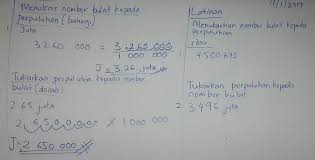 Menukar nombor bulat kepada
perpuluhan (bahagi)
Juta
3 260 000 = 3 260 000
1 000 000
J = 3.26 juta
Tukarkan perpuluhan kepada nombor
bulat (darab)
2.65 juta
2.650000 × 1 000 000
J = 2 650 000
Latihan
Menukarkan nombor bulat kepada
perpuluhan
1. 4 500 695
Tukarkan perpuluhan kepada
nombor bulat
2. 3.496 juta